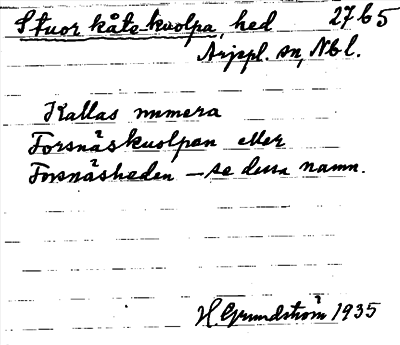 Stuor kåte-kuolpa, hed 2765
Arjepl. sn, Nbl.
Kallas numera
Forsnäskuolpan eller
Forsnäsheden – se dessa namn.
H. Grundström 1935